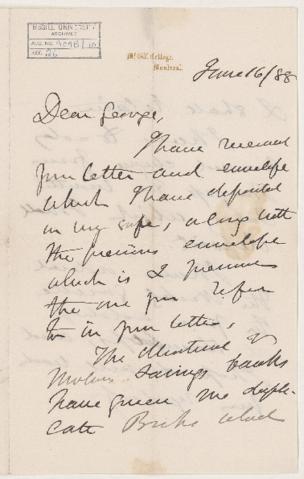 McGILL UNIVERSITY
ARCHIVES
ACC. NO.
REF.
McGill College,
Montreal.
June 16/88
Dear George,
I have received
your letter and envelope
which I have deposited
in my safe, along with
the previous envelope
which is I presume
the one you refer
to in your letter.
The Montreal &
Molsons Savings banks
have given me dupli-
cate Books which